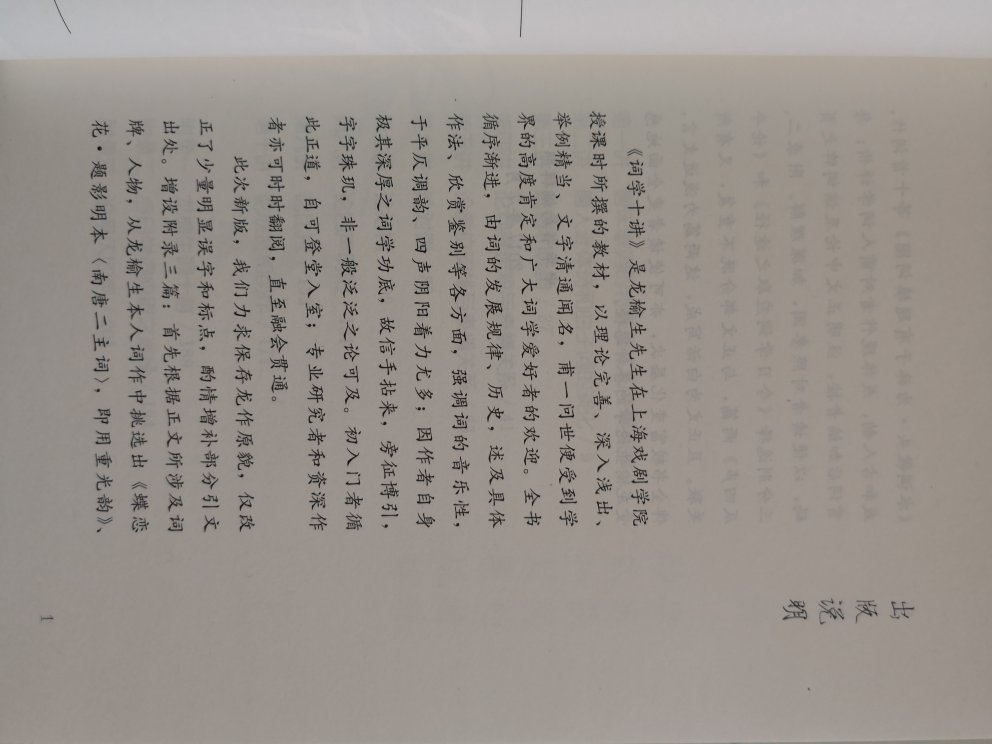 出版说明
《词学十讲》是龙榆生先生在上海戏剧学院
授课时所撰的教材，以理论完善、深入浅出、
举例精当、文字清通闻名，甫一问世便受到学
界的高度肯定和广大词学爱好者的欢迎。全书
循序渐进，由词的发展规律、历史，述及具体
作法、欣赏鉴别等各方面，强调词的音乐性，
于平仄调韵、四声阴阳着力尤多；因作者自身
极其深厚之词学功底，故信手拈来，旁征博引，
字字珠玑，非一般泛泛之论可及。初入门者循
此正道，自可登堂入室；专业研究者和资深作
者亦可时时翻阅，直至融会贯通。
此次新版，我们力求保存龙作原貌，仅改
正了少量明显误字和标点，酌情增补部分引文
出处。增设附录三篇：首先根据正文所涉及词
牌、人物，从龙榆生本人词作中挑选出《蝶恋
花·题影明本〈南唐二主词〉，即用重光韵》、
1